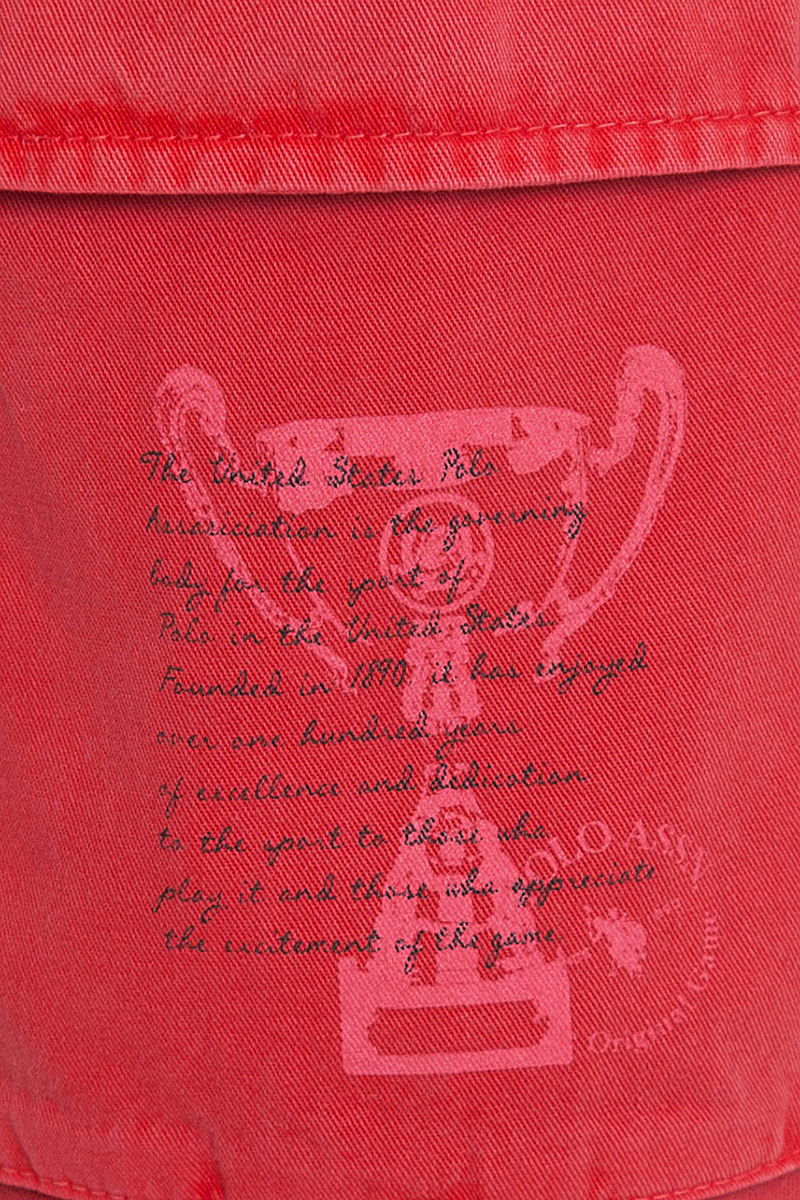 The United States Polo
Assosiciation is the governing
body for the sport of
Polo in the United States.
Founded in 1890 it has enjoyed
over one hundred years
of excellence and dedication
to the sport to those who
play it and those who appreciate
the excitement of the game
OLO ASSN
Original Game